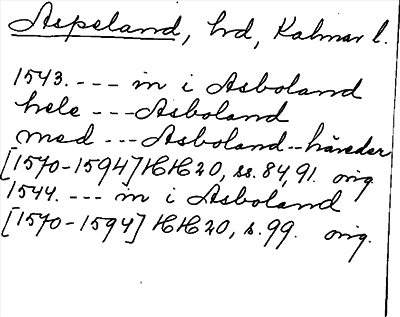 Aspeland, hd, Kalmar l.
1543. --- in i Asboland
hele --- Asboland
med --- Asboland -- häreder
[1570-1594] HH 20, ss. 84, 91. orig.
1544. --- in i Asboland
[1570-1594] HH 20, s. 99. orig.